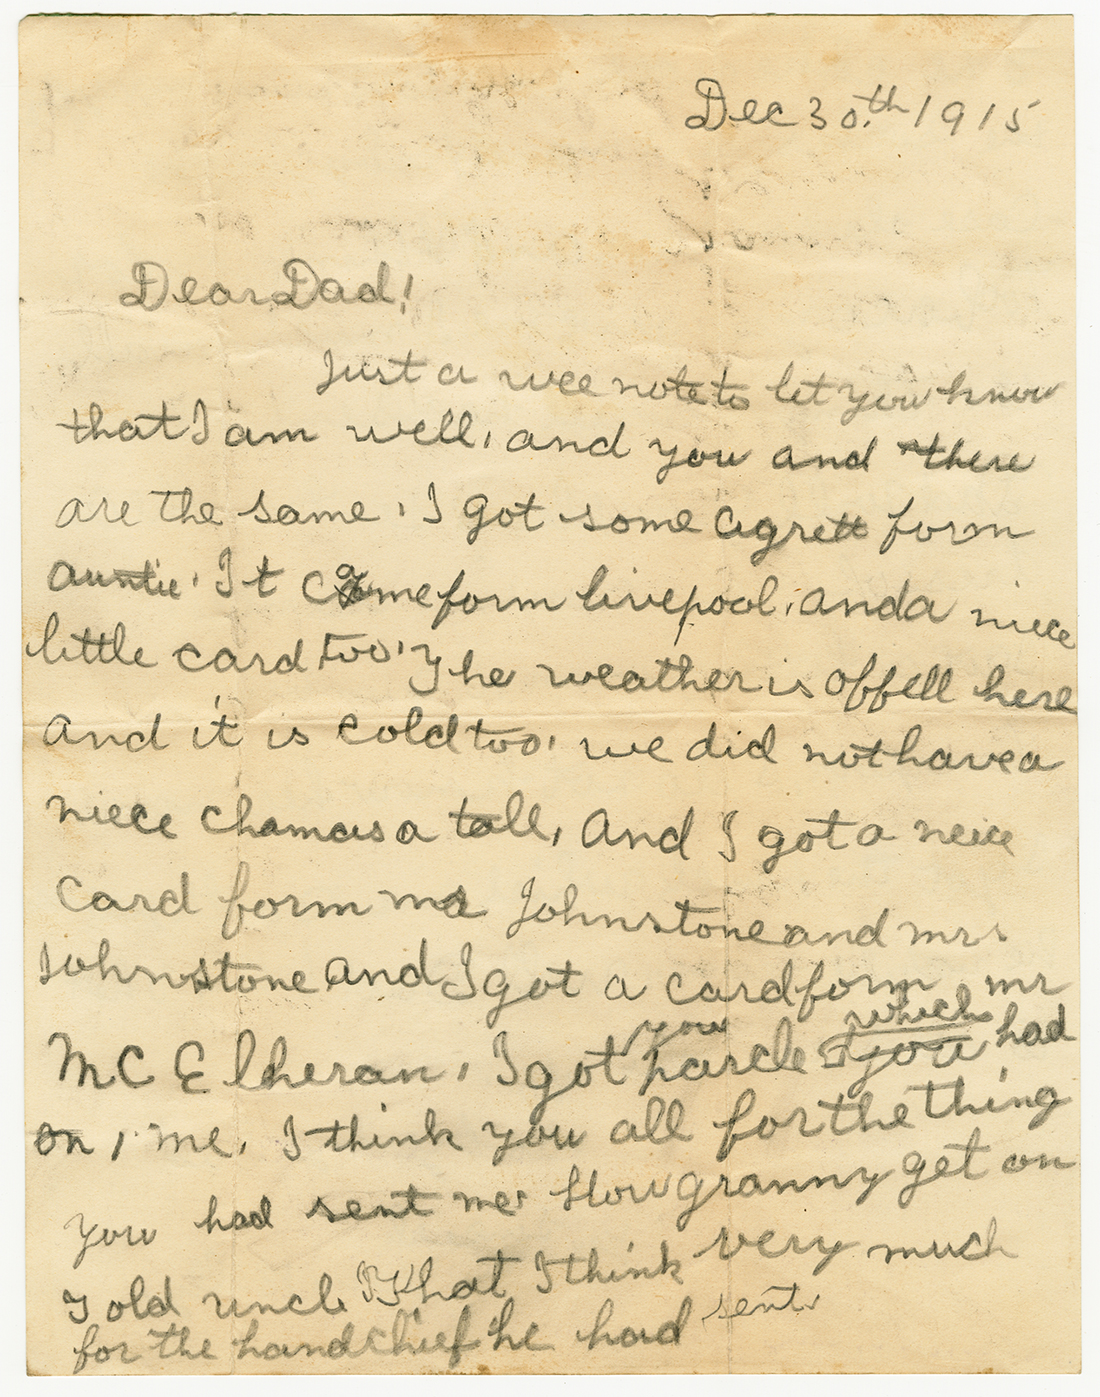 Dec 30.th 1915
Dear Dad!
Just a wee note to let you know
that I am well, and you and there
are the same. I got some agrett form
auntie. It came form livepool. and a niece
little card too. The weather is offell here
and it is cold too. we did not have a
niece chamas a tall. and I got a neice
card form mr Johnstone and mrs
Johnstone and I got a card form mr
MC Elheran. I got you parcle which had
on, me. I think you all for the thing
you had sent me. How granny get on
I old uncle that I think very much
for the handchief he had sent.